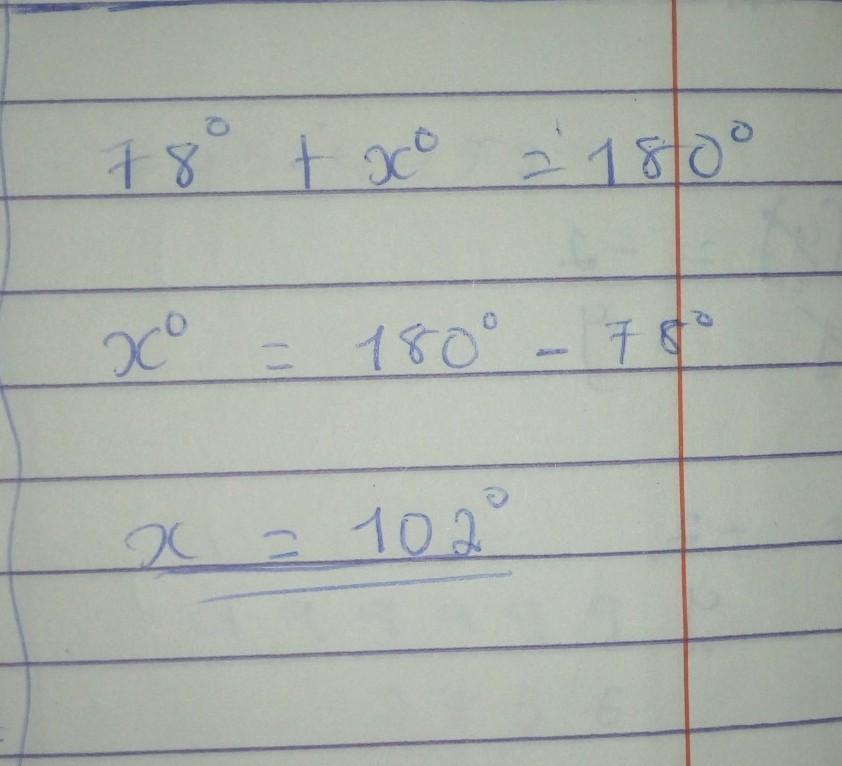 78° + x° = 180°
x° = 180° - 78°
x = 102°